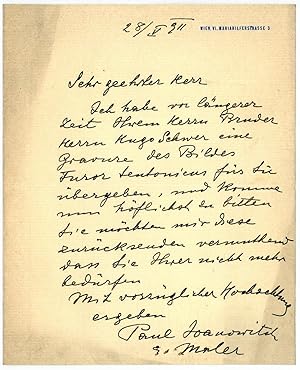 28/V 911
WIEN, VI. MARIAHILFERSTRASSE 3
Sehr geehrter Herr
Ich habe vor längerer
Zeit Ihrem Herrn Bruder
Herrn Hugo Schwer eine
Gravure des Bildes
Furor teutonicus für Sie
übergeben, und komme
nun höflichst zu bitten
Sie möchten mir diese
zurücksenden vermuthend
dass Sie Ihrer nicht mehr
bedürfen
Mit vorzüglicher Hochachtung
ergeben
Paul Joanowitch
Maler